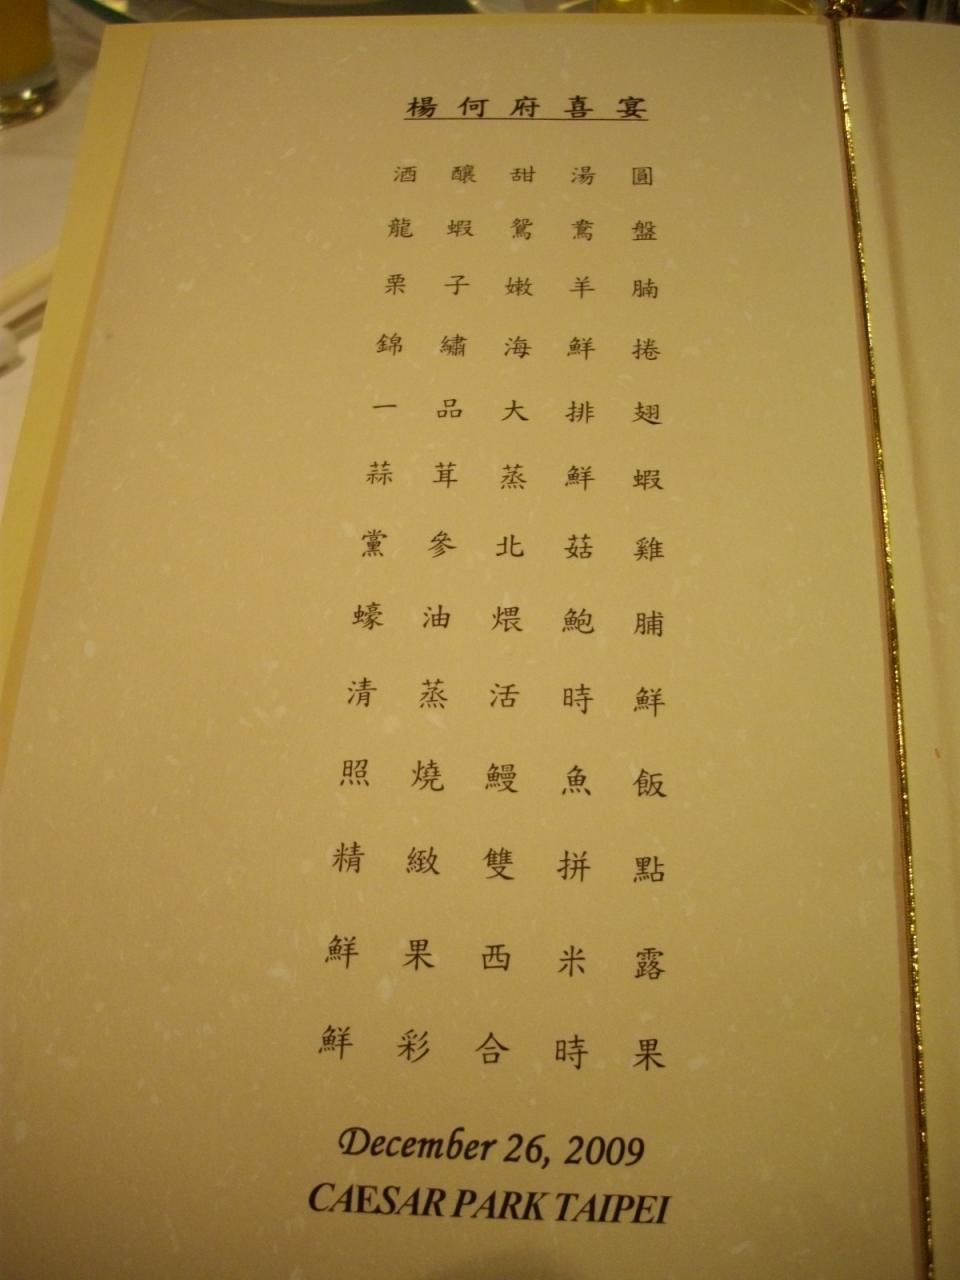 楊何府喜宴
酒釀甜湯圓
龍蝦鴛鴦盤
栗子嫩羊腩
錦繡海鮮捲
一品大排翅
蒜茸蒸鮮蝦
黨參北菇雞
蠔油煨鮑脯
清蒸活時鮮
照燒鰻魚飯
精緻雙拼點
鮮果西米露
鮮彩合時果
December 26, 2009
CAESAR PARK TAIPEI